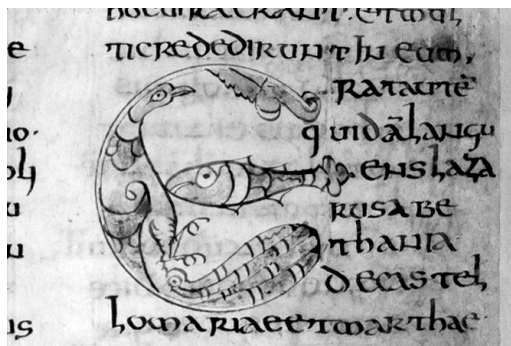 hocuiraerant. etmul
ticredediruntIn eum,
Eratautē
quidālangu
enslaza
rusabe
thania
decastel
lomariaeetmarthae